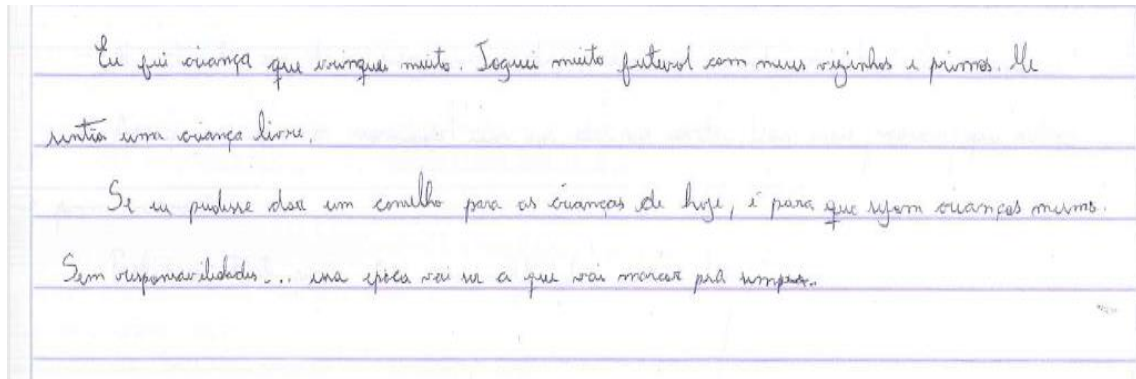 Eu fui criança que brinquei muito. Joguei muito futebol com meus vizinhos e primos. Me
sentia uma criança livre.
Se eu pudesse dar um conselho para as crianças de hoje, é para que sejam crianças mesmo.
Sem responsabilidades... essa época vai ser a que vai marcar pra sempre.